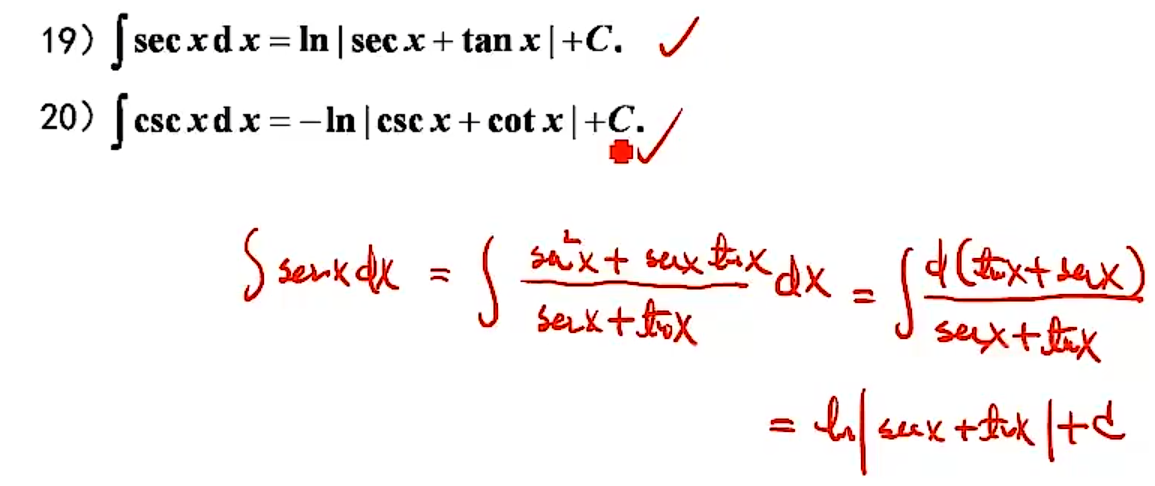 19）∫ sec x d x = ln | sec x + tan x | +C. ✓
20）∫ csc x d x = −ln | csc x + cot x | +C. ✓
∫ secx dx = ∫ (sec²x + secx tanx)/(secx + tanx) dx = ∫ d(tanx + secx)/(secx + tanx)
= ln| secx + tanx | + C